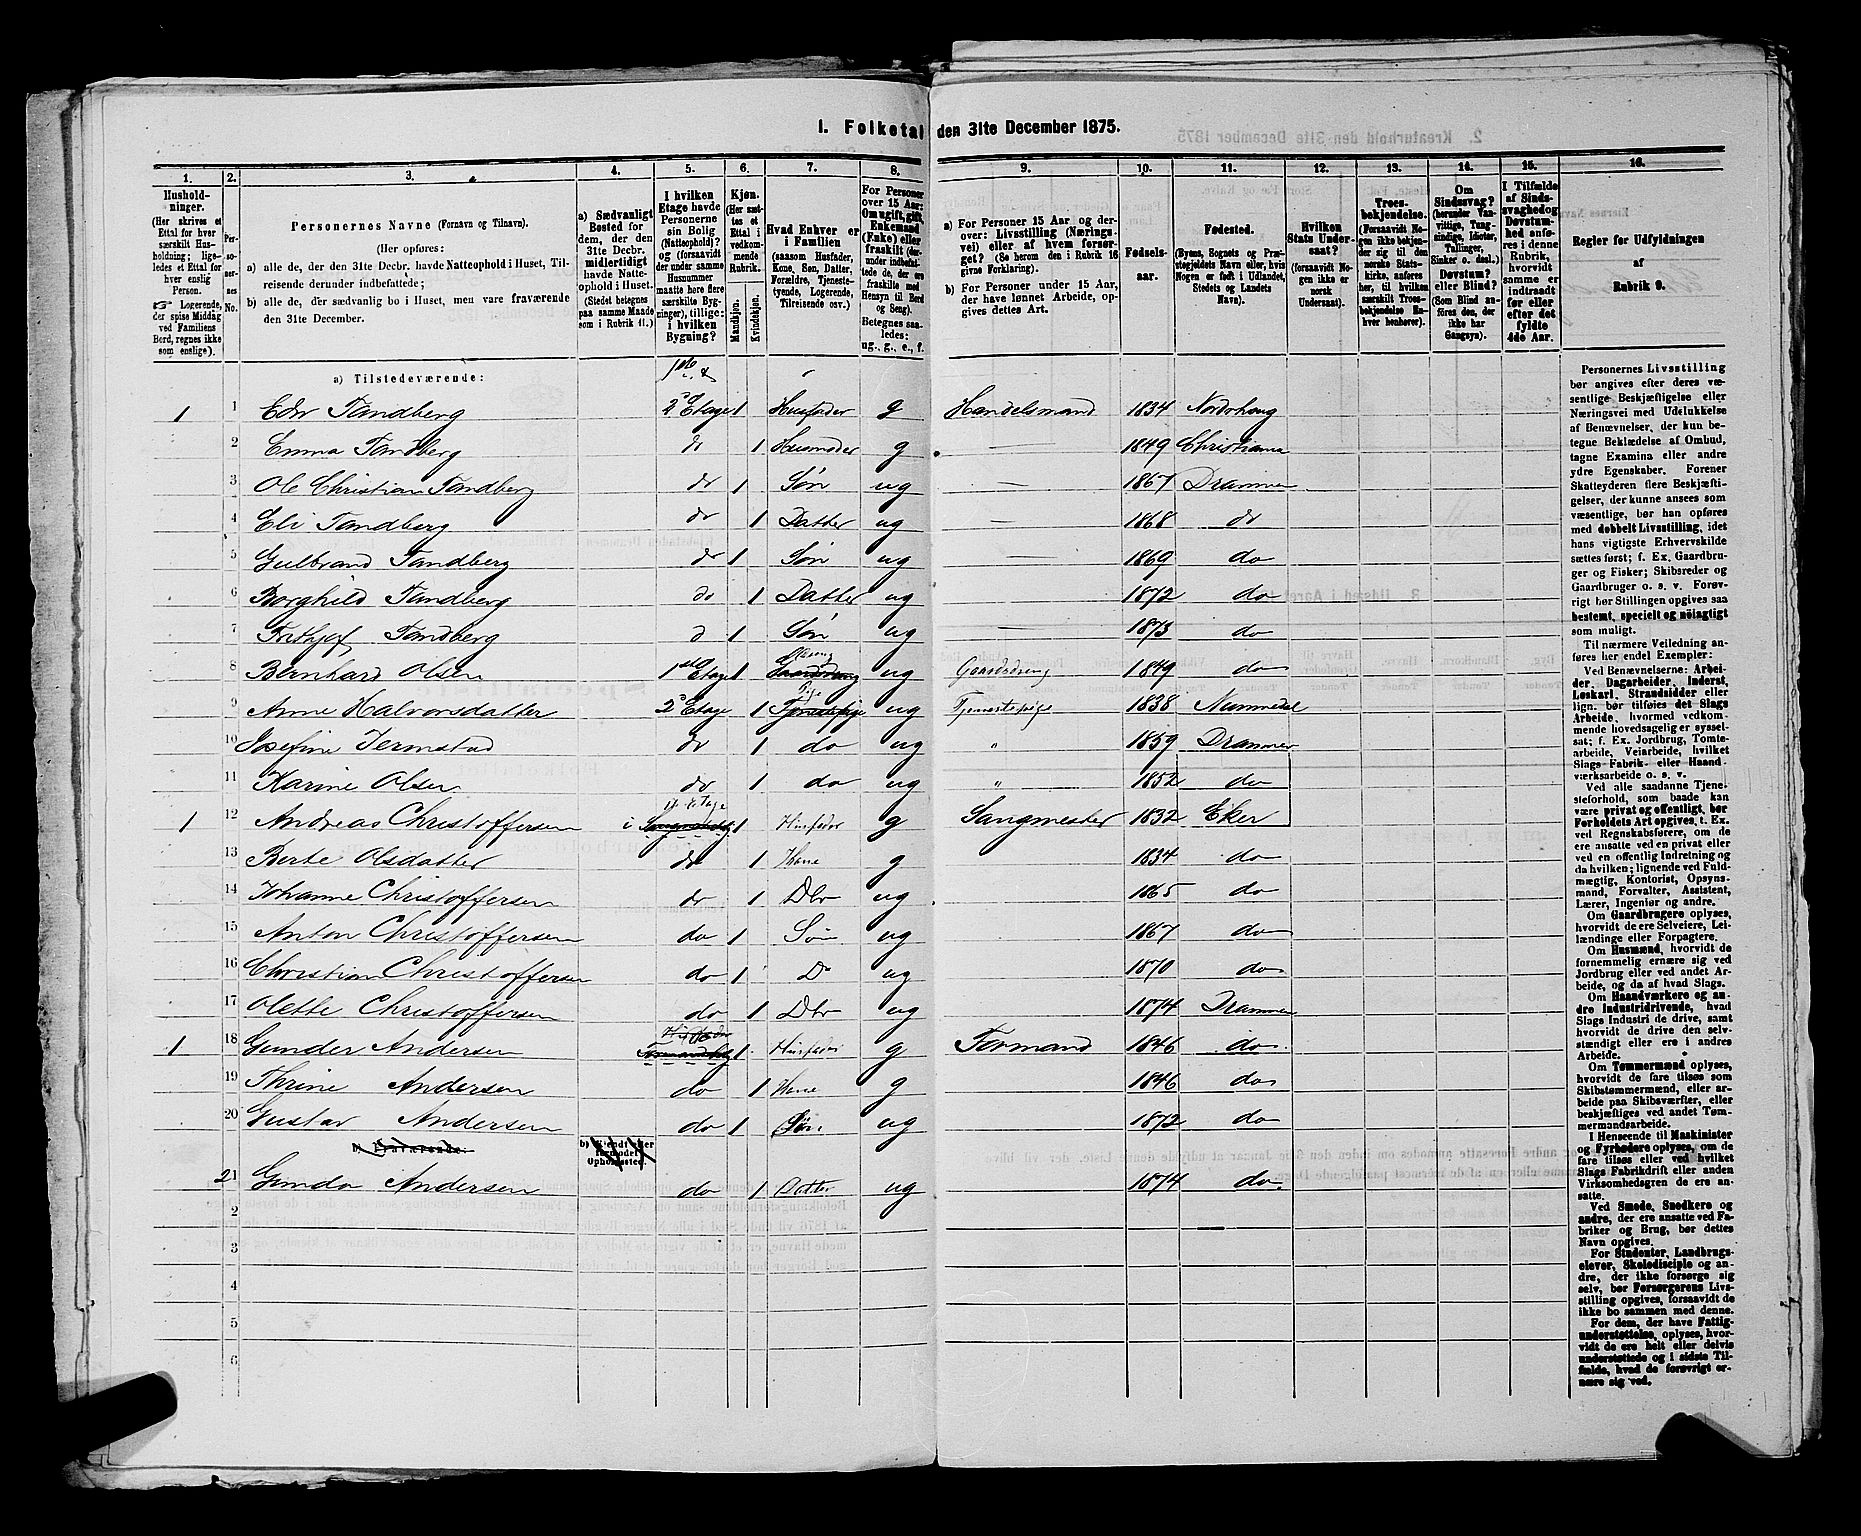 1. Folketal den 31te December 1875.
1. 2. 3. 4. 5. 6. 7. 8. 9. 10. 11. 12. 13. 14. 15. 16.
Hushold-
ninger.
(Her skrives et
Ettal for hver
særskilt Hus-
holdning; lige-
ledes et Ettal for
hver enslig
Person.
Logerende,
der spise Middag
ved Familiens
Bord, regnes ikke
som enslige).
Per-
so-
ner-
nes
No.
Personernes Navne (Fornavn og Tilnavn).
(Her opføres:
a) alle de, der den 31te Decbr. havde Natteophold i Huset, Til-
reisende derunder indbefattede;
b) alle de, der sædvanlig bo i Huset, men vare fraværende
den 31te December.
a) Sædvanligt
Bosted for
dem, der den
31te Decbr.
midlertidigt
havde Natte-
ophold i Huset
(Stedet betegnes
paa samme Maade
som i Rubrik 11.)
I hvilken
Etage havde
Personerne
sin Bolig
(Natteophold)?
og (forsaavidt
der under samme
Husnummer
maatte høre flere
særskilte Byg-
ninger), tillige:
i hvilken
Bygning?
Kjøn.
(Her sæt-
tes et
Ettal i
vedkom-
mende
Rubrik.
Mandkjøn.
Kvindekjøn.
Hvad Enhver er
i Familien
(saasom Husfader,
Kone, Søn, Datter,
Forældre, Tjeneste-
tyende, Logerende,
Tilreisende osv.)
For Personer
over 15 Aar:
Om ugift, gift,
Enkemand
(Enke) eller
fraskilt (der-
under indbefat-
tede de, der ere
fraskilte med
Hensyn til Bord
og Seng).
Betegnes saa-
ledes:
ug., g., e., f.
a) For Personer 15 Aar og der-
over: Livsstilling (Nærings-
vei) eller af hvem forsør-
get? (Se herom den i Rubrik 16
givne Forklaring).
b) For Personer under 15 Aar,
der have lønnet Arbeide, op-
gives dettes Art.
Fødsels-
aar.
Fødested.
(Byens, Sognets og Præ-
stegjeldets Navn eller, hvis
Nogen er født i Udlandet,
Stedets og Landets
Navn).
Hvilken
Stats Under-
saat?
(forsaavidt No-
gen ikke er
norsk
Undersaat).
Troes-
bekjendelse.
(Forsaavidt No-
gen ikke bekjen-
der sig til den
norske Stats-
kirke, anføres
her, til hvilken
særskilt Troes-
bekjendelse En-
hver henhører).
Om
Sindssvag?
(herunder Van-
vittige, Tung-
sindige, Idioter,
Tullinger,
Sinker o. desl.)
Døvstum?
eller Blind?
(Som Blind an-
føres den, der
ikke har
Gangsyn).
I Tilfælde
af Sinds-
svaghed og
Døvstum-
hed anfø-
res i denne
Rubrik,
hvorvidt
samme er
indtraadt
før eller
efter det
fyldte
4de Aar.
Regler for Udfyldningen
af
Rubrik 9.
a) Tilstedeværende: 1ste &
1 1 Edv Tandberg 2den Etage 1 Husfader g Handelsmand 1834 Norderhoug
2 Emma Tandberg do 1 Husmoder g — 1849 Christiania
3 Ole Christian Tandberg do 1 Søn ug — 1867 Drammen
4 Eli Tandberg do 1 Datter ug — 1868 do
5 Gulbrand Tandberg do 1 Søn ug — 1869 do
6 Borghild Tandberg do 1 Datter ug — 1872 do
7 Frithjof Tandberg d 1 Søn ug — 1873 do
8 Bernhard Olsen 1ste Etage 1 Gaardsdreng ug Gaardsdreng 1849 do
9 Anne Halvorsdatter 2d Etage 1 Tjenestepige Pige ug Tjenestepige 1838 Nummedal
10 Josefine Jermstad do 1 do ug " 1859 Drammen
11 Karine Olsen do 1 do ug " 1852 do
1 12 Andreas Christoffersen i 1 Husfader g Sangmester 1832 Eker
13 Berte Olsdatter do 1 Kone g 1834 do
14 Johanne Christoffersen do 1 Dtr ug 1865 do
15 Anton Christoffersen do 1 Søn ug 1867 do
16 Christian Christoffersen do 1 Do ug 1870 do
17 Olette Christoffersen do 1 Dtr ug 1874 Drammen
1 18 Gunder Andersen 1 Husfader g Formand 1846 do
19 Thrine Andersen do 1 Kone g 1846 do
20 Gustav Andersen do 1 Søn ug 1872 do
b) Fraværende: b) Kjendt eller
formodet
Opholdssted.
21 Gunda Andersen do 1 Datter ug 1874 do
2
3
4
5
6
Personernes Livsstilling
bør angives efter deres væ-
sentlige Beskjæftigelse eller
Næringsvei med Udelukkelse
af Benævnelser, der kun be-
tegne Beklædelse af Ombud,
tagne Examina eller andre
ydre Egenskaber. Forener
Skatteyderen flere Beskjæfti-
gelser, der kunne ansees som
væsentlige, bør han opføres
med dobbelt Livsstilling, idet
hans vigtigste Erhvervskilde
sættes først; f. Ex. Gaardbru-
ger og Fisker; Skibsreder og
Gaardbruger o. s. v. Forøv-
rigt bør Stillingen opgives saa
bestemt, specielt og nöiagtigt
som muligt.
Til nærmere Veiledning an-
føres her endel Exempler:
Ved Benævnelserne: Arbei-
der, Dagarbeider, Inderst,
Løskarl, Strandsidder eller
lign. bør tilføies det Slags
Arbeide, hvormed vedkom-
mende hovedsagelig er syssel-
sat; f. Ex. Jordbrug, Tomte-
arbeide, Veiarbeide, hvilket
Slags Fabrik- eller Haand-
værksarbeide o. s. v.
Ved alle saadanne Tjene-
steforhold, som baade kan
være privat og offentligt, bør
Forholdets Art opgives, t. Ex.
ved Regnskabsførere, om de
ere ansatte ved en privat eller
ved en offentlig Indretning og
da hvilken; lignende ved Fuld-
mægtig, Kontorist, Opsyns-
mand, Forvalter, Assistent,
Lærer, Ingeniør og andre.
Om Gaardbrugere oplyses,
hvorvidt de ere Selveiere, Lei-
lændinge eller Forpagtere.
Om Husmænd, hvorvidt de
fornemmelig ernære sig ved
Jordbrug eller ved andet Ar-
beide, og da af hvad Slags.
Om Haandværkere og an-
dre Industridrivende, hvad
Slags Industri de drive, samt
hvorvidt de drive den selv-
stændigt eller ere i andres
Arbeide.
Om Tømmermænd oplyses,
hvorvidt de fare tilsøs som
Skibstømmermænd, eller ar-
beide paa Skibsværfter, eller
beskjæftiges ved andet Tøm-
mermandsarbeide.
I Henseende til Maskinister
og Fyrbødere oplyses, om de
fare tilsøs eller ved hvilket
Slags Fabrikdrift eller anden
Virksomhedsgren de ere an-
satte.
Ved Smede, Snedkere og
andre, der ere ansatte ved Fa-
briker og Brug, bør dettes
Navn opgives.
For Studenter, Landbrugs-
elever, Skoledisciple og an-
dre, der ikke forsørge sig
selv, bør Forsørgerens Livs-
stilling opgives, forsaavidt de
ikke bo sammen med denne.
For dem, der have Fattig-
understøttelse, oplyses, hvor-
vidt de ere helt eller delvis
understøttede og i sidste Til-
fælde, hvad de forøvrigt er-
nære sig ved.